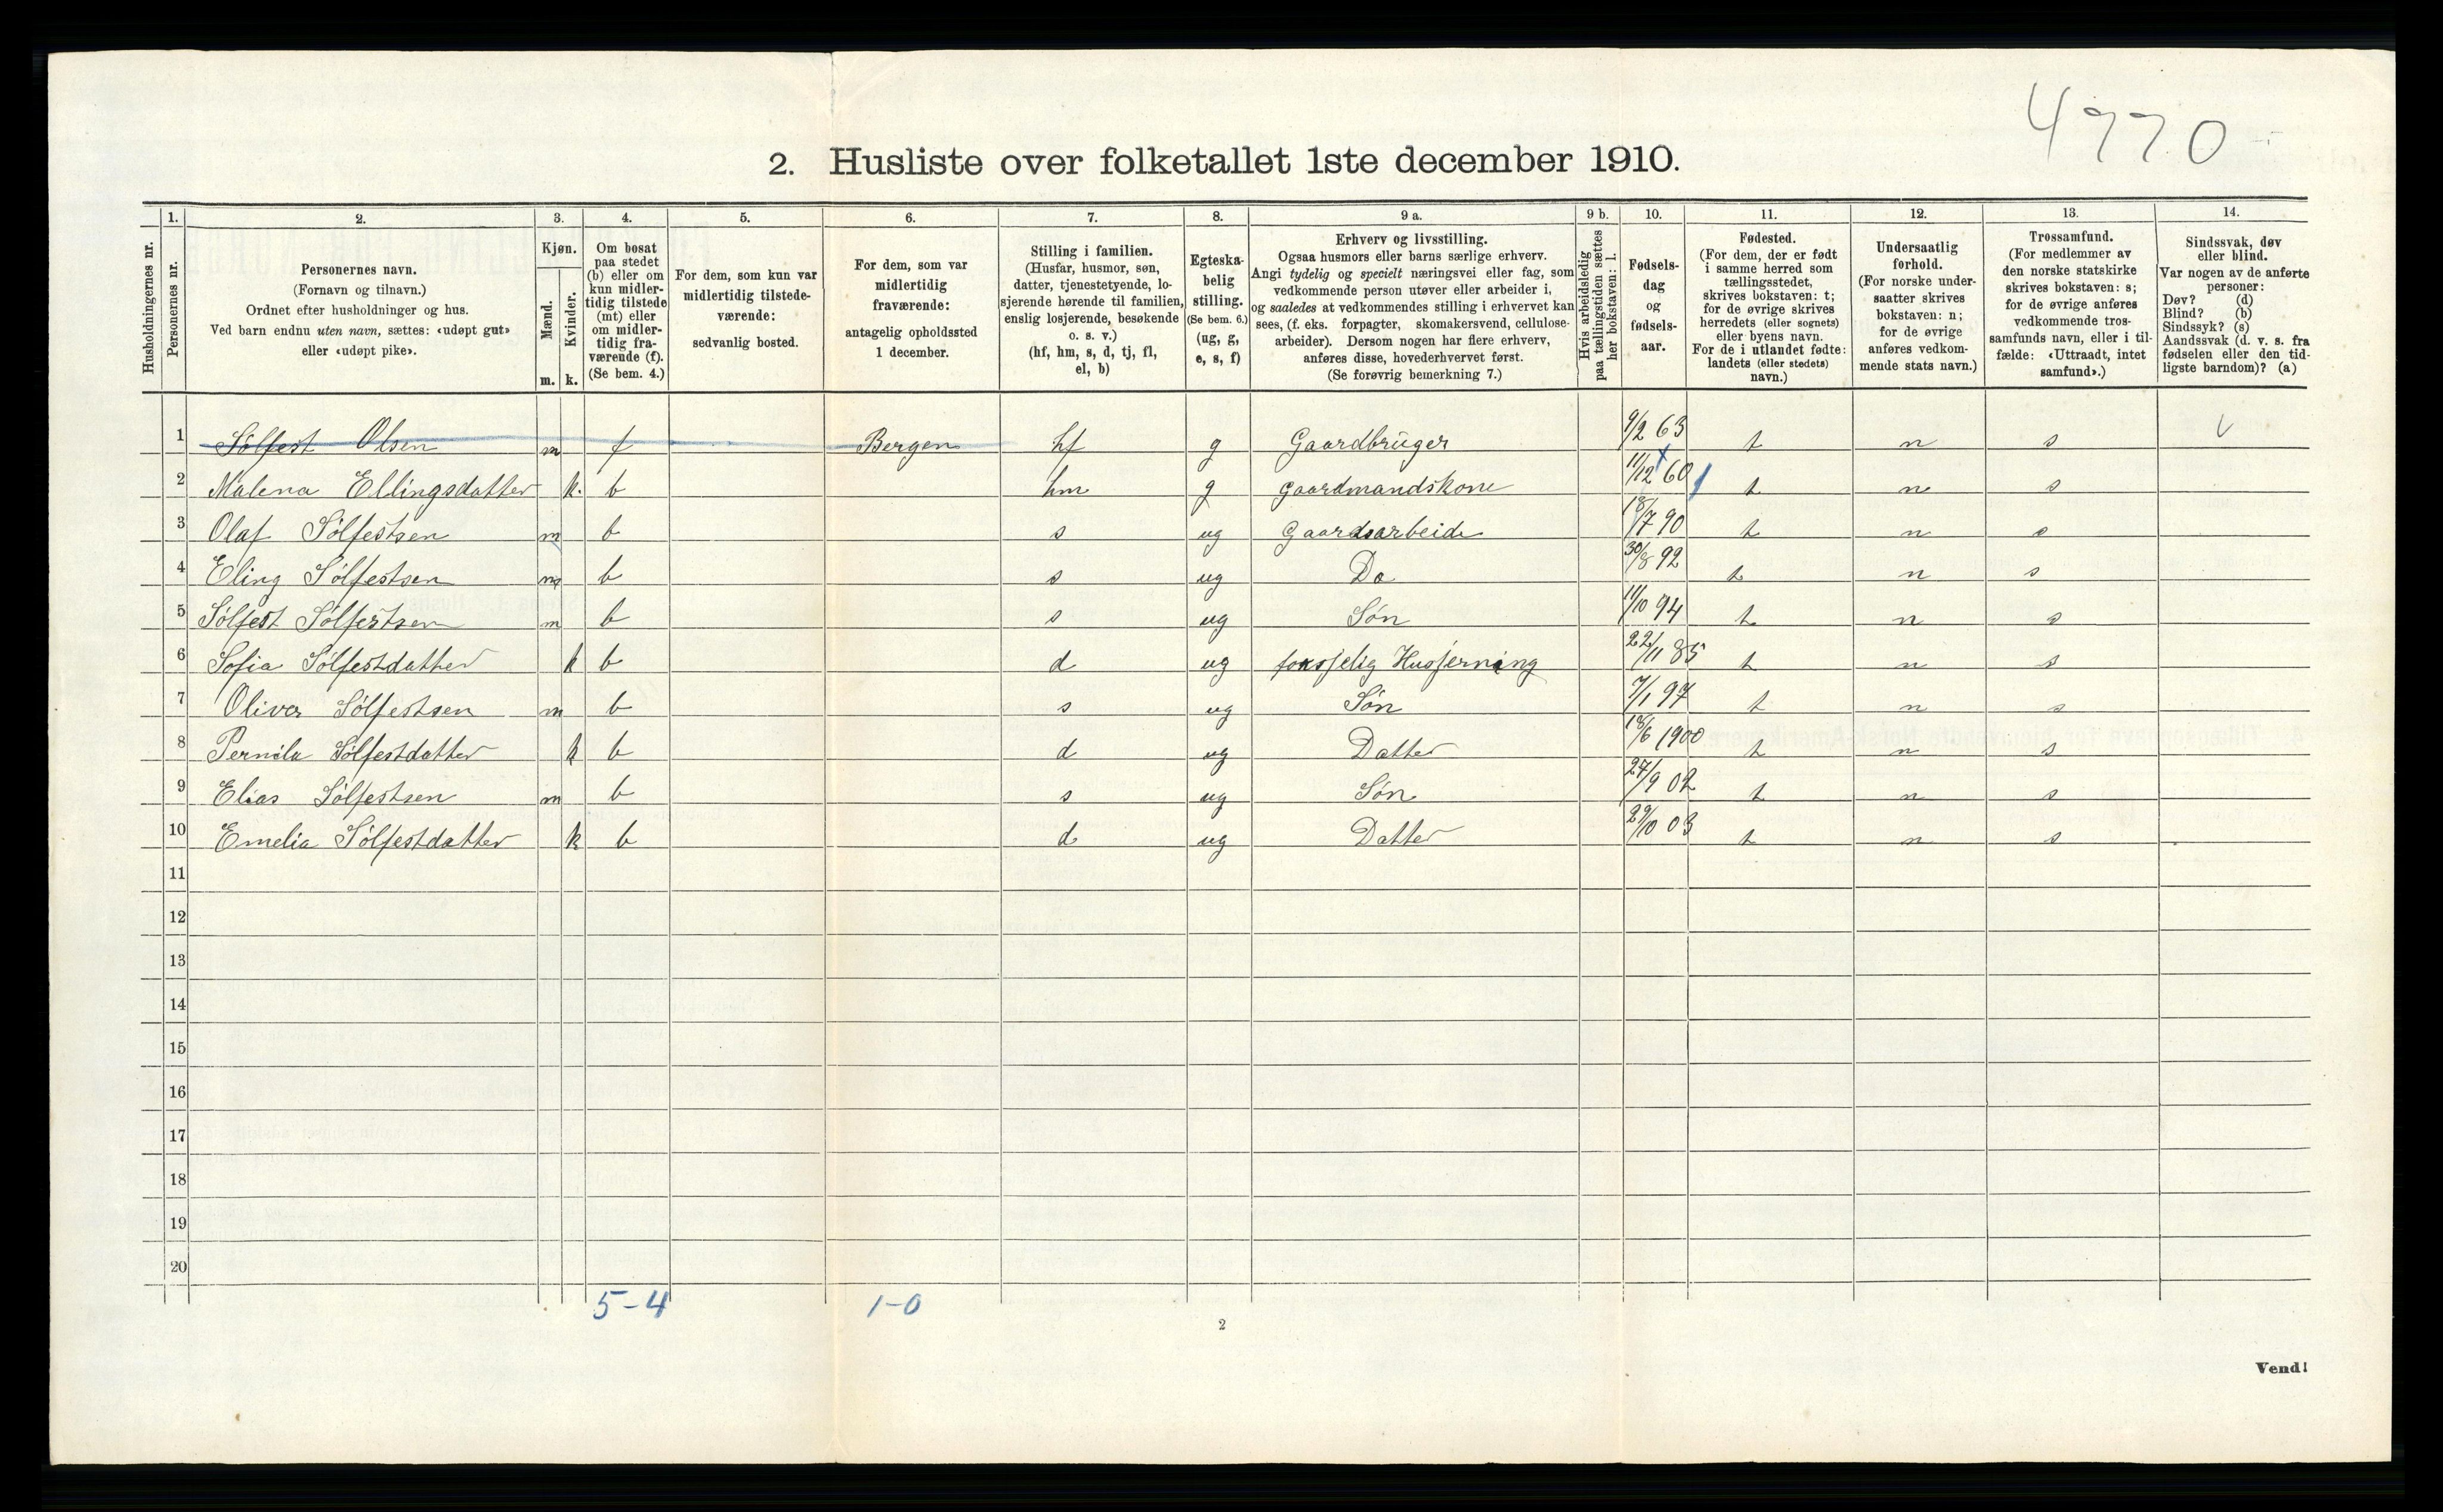 4770
2. Husliste over folketallet 1ste december 1910.
Husholdningernes nr.
1. Personernes nr.
2. Personernes navn.
(Fornavn og tilnavn.)
Ordnet efter husholdninger og hus.
Ved barn endnu uten navn, sættes: «udøpt gut»
eller «udøpt pike».
3. Kjøn.
Mænd. m.
Kvinder. k.
4. Om bosat
paa stedet
(b) eller om
kun midler-
tidig tilstede
(mt) eller
om midler-
tidig fra-
værende (f).
(Se bem. 4.)
5. For dem, som kun var
midlertidig tilstede-
værende:
sedvanlig bosted.
6. For dem, som var
midlertidig
fraværende:
antagelig opholdssted
1 december.
7. Stilling i familien.
(Husfar, husmor, søn,
datter, tjenestetyende, lo-
sjerende hørende til familien,
enslig losjerende, besøkende
o. s. v.)
(hf, hm, s, d, tj, fl,
el, b)
8. Egteska-
belig
stilling.
(Se bem. 6.)
(ug, g,
e, s, f)
9 a. Erhverv og livsstilling.
Ogsaa husmors eller barns særlige erhverv.
Angi tydelig og specielt næringsvei eller fag, som
vedkommende person utøver eller arbeider i,
og saaledes at vedkommendes stilling i erhvervet kan
sees, (f. eks. forpagter, skomakersvend, cellulose-
arbeider). Dersom nogen har flere erhverv,
anføres disse, hovederhvervet først.
(Se forøvrig bemerkning 7.)
9 b. Hvis arbeidsledig
paa tællingstiden sættes
her bokstaven: l.
10. Fødsels-
dag
og
fødsels-
aar.
11. Fødested.
(For dem, der er født
i samme herred som
tællingsstedet,
skrives bokstaven: t;
for de øvrige skrives
herredets (eller sognets)
eller byens navn.
For de i utlandet fødte:
landets (eller stedets)
navn.)
12. Undersaatlig
forhold.
(For norske under-
saatter skrives
bokstaven: n;
for de øvrige
anføres vedkom-
mende stats navn.)
13. Trossamfund.
(For medlemmer av
den norske statskirke
skrives bokstaven: s;
for de øvrige anføres
vedkommende tros-
samfunds navn, eller i til-
fælde: «Uttraadt, intet
samfund».)
14. Sindssvak, døv
eller blind.
Var nogen av de anførte
personer:
Døv? (d)
Blind? (b)
Sindssyk? (s)
Aandssvak (d. v. s. fra
fødselen eller den tid-
ligste barndom)? (a)
1 Sølfest Olsen m f Bergen hf g Gaardbrüger 9/2 63 t n s
2 Malena Ellingsdatter k. b hm g gaardmandskone 11/12 60 t n s
3 Olaf Sølfestsen m b s ug Gaardsarbeide 18/7 90 t n s
4 Eling Sølfestsen m b s ug Do 30/8 92 t n s
5 Sølfest Sølfestsen m b s ug Søn 11/10 94 t n s
6 Sofia Sølfestdatter k b d ug 22/11 85 t n s
7 Oliver Sølfestsen m b s ug Søn 7/1 97 t n s
8 Pernila Sølfestdatter k b d ug Datter 18/6 1900 t n s
9 Elias Sølfestsen m b s ug Søn 27/9 02 t n s
10 Emelia Sølfestdatter k b d ug Datter 29/10 03 t n s
11
12
13
14
15
16
17
18
19
20
5-4 1-0
2
Vend!